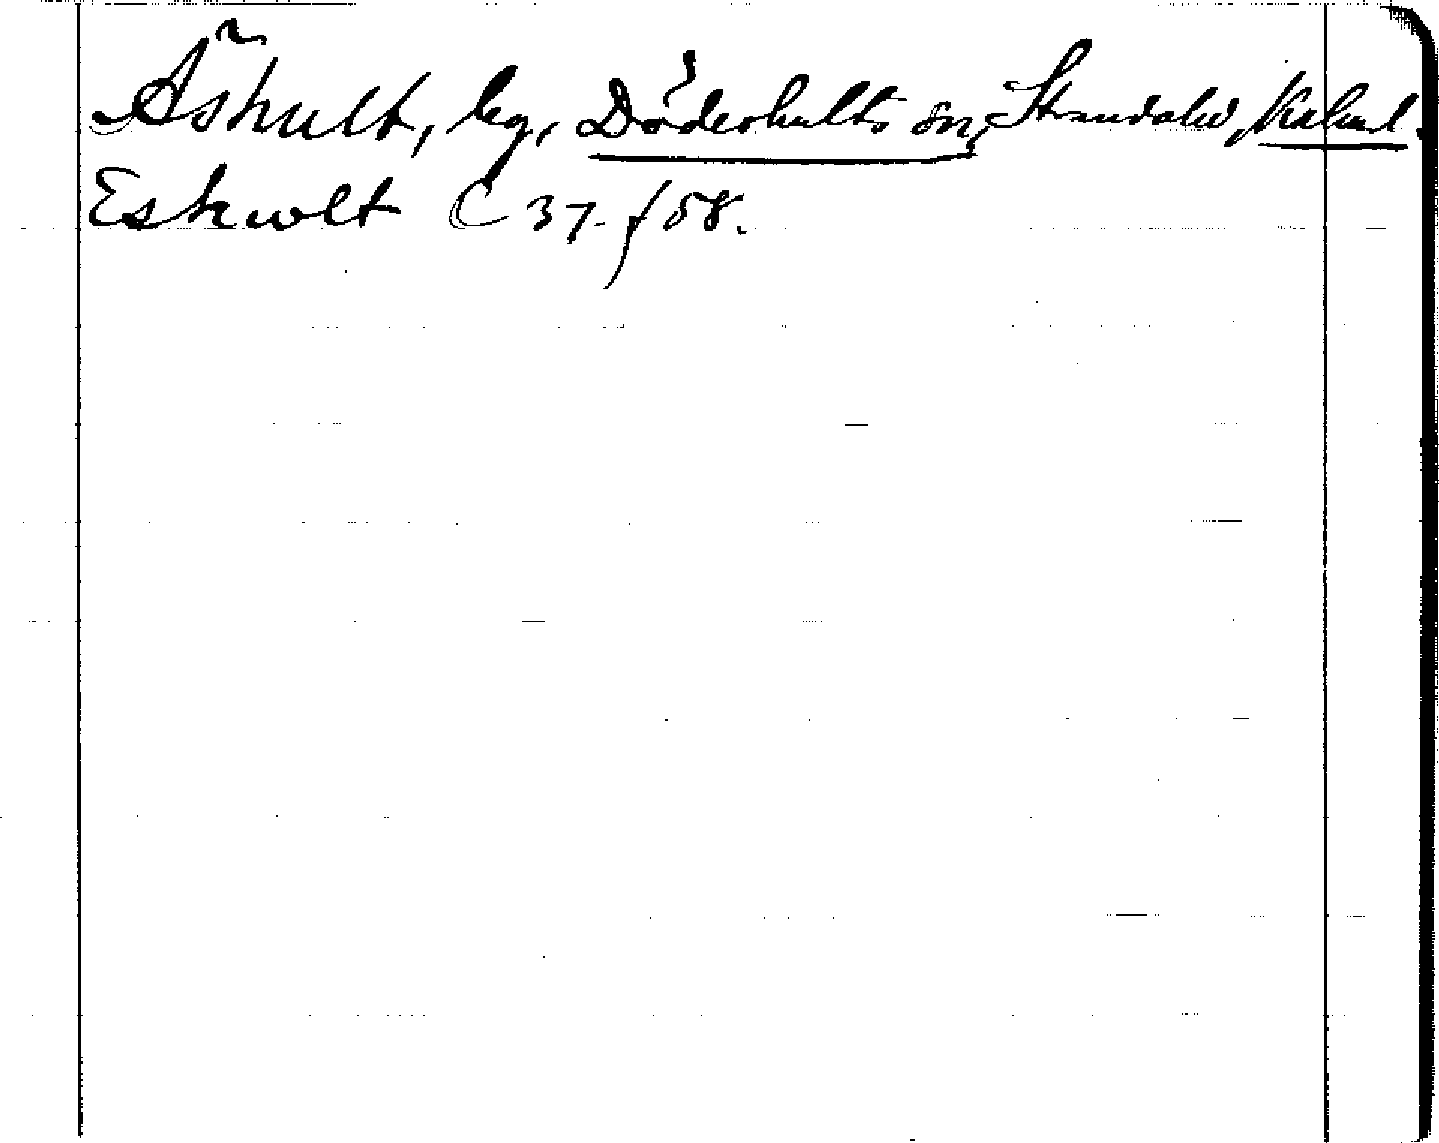 Äshult, by, Döderhults sn, Strandabd, Kalm.l.
Eskwlt C 37. f 58.